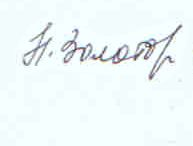 Н. Золотар